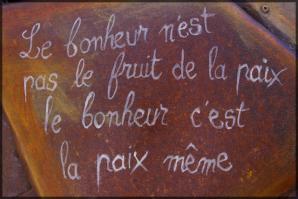 Le bonheur n'est
pas le fruit de la paix
le bonheur c'est
la paix même